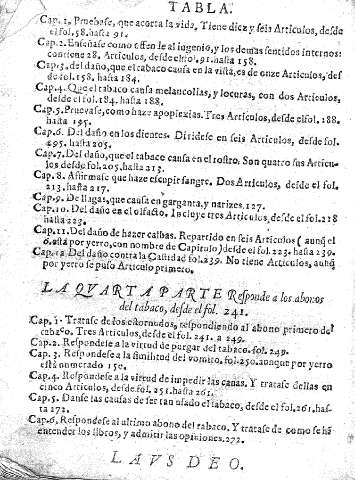 TABLA.
Cap. 1. Pruebase, que acorta la vida. Tiene diez y seis Articulos, desde
el fol. 58. hasta 91.
Cap. 2. Enseñase como offende al iugenio, y los demas sentidos internos:
contiene 28. Articulos, desde el fol. 91. hasta 158.
Cap. 3. del daño, que el tabaco causa en la vista, es de onze Articulos, des
de fol. 158. hasta 184.
Cap. 4. Que el tabaco causa melancolias, y locuras, con dos Articulos,
desde el fol. 184. hasta 188.
Cap. 5. Pruevase, como haze apoplexias. Tres Articulos, desde el fol. 188.
hasta 195.
Cap. 6. Del daño en los dientes. Dividese en seis Articulos, desde fol.
195. hasta 205.
Cap. 7. Del daño, que el tabaco causa en el rostro. Son quatro sus Articu-
los desde fol. 205. hasta 213.
Cap. 8. Afirmase que haze escupir sangre. Dos Articulos, desde el fol.
213. hasta 217.
Cap. 9. De llagas, que causa en garganta, y narizes. 127.
Cap. 10. Del daño en el olfacto. Incluye tres Articulos, desde el fol. 218
hasta 223.
Cap. 11. Del daño de hazer calbas. Repartido en seis Articulos ( aunq̃ el
6. está por yerro, con nombre de Capitulo) desde el fol. 223. hasta 239.
Cap. 12. Del daño contra la Castidad fol. 239. No tiene Articulos, aunq̃
por yerro se puso Articulo primero.
LA QVARTA PARTE Responde a los abonos
del tabaco, desde el fol. 241.
Cap. 1. Tratase de los estornudos, respondiendo al abono primero del
tabaco. Tres Articulos, desde el fol. 241. a 249.
Cap. 2. Respondele a la virtud de purgar del tabaco. fol. 249.
Cap. 3. Respondese a la similitud del vomito. fol. 250. aunque por yerro
está numerado 150.
Cap. 4. Respondese a la virtud de impedir las canas. Y tratase dellas en
cinco Articulos, desde. fol. 251. hasta 261.
Cap. 5. Danse las causas de ser tan usado el tabaco, desde el fol. 261. has-
ta 272.
Cap. 6. Respondese al ultimo abono del tabaco. Y tratase de como se hã
entender los libros, y admitir las opiniones. 272.
LAVS DEO.